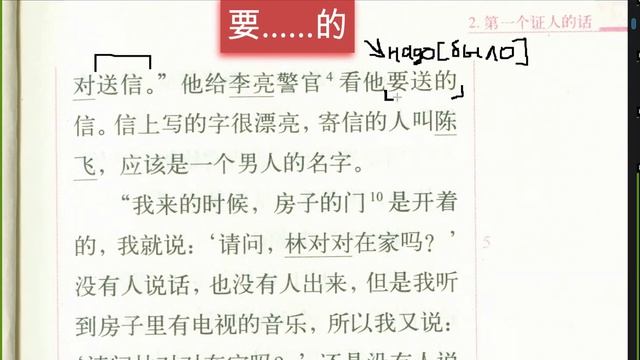 要……的
2. 第一个证人的话
надо[было]
对送信。”他给李亮警官⁴看他要送的
信。信上写的字很漂亮，寄信的人叫陈
飞，应该是一个男人的名字。
“我来的时候，房子的门¹⁰是开着
的，我就说：‘请问，林对对在家吗？’
5
没有人说话，也没有人出来，但是我听
到房子里有电视的音乐，所以我又说：
‘请问林对对在家吗？’还是没有人